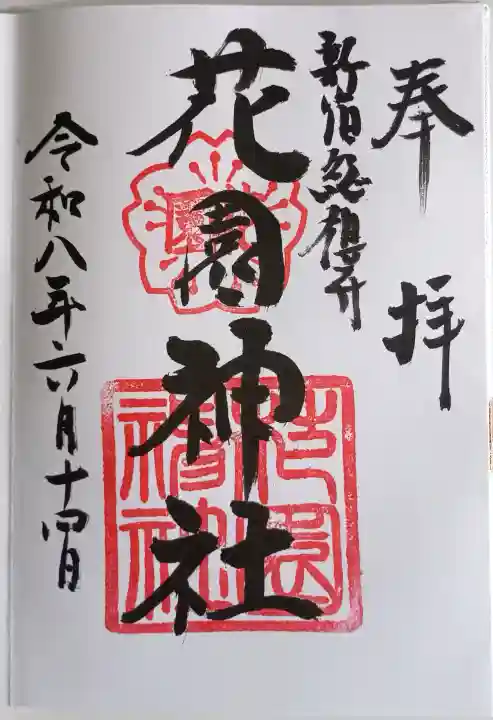 奉拝
新宿総鎮守
花園神社
令和八年六月十四日